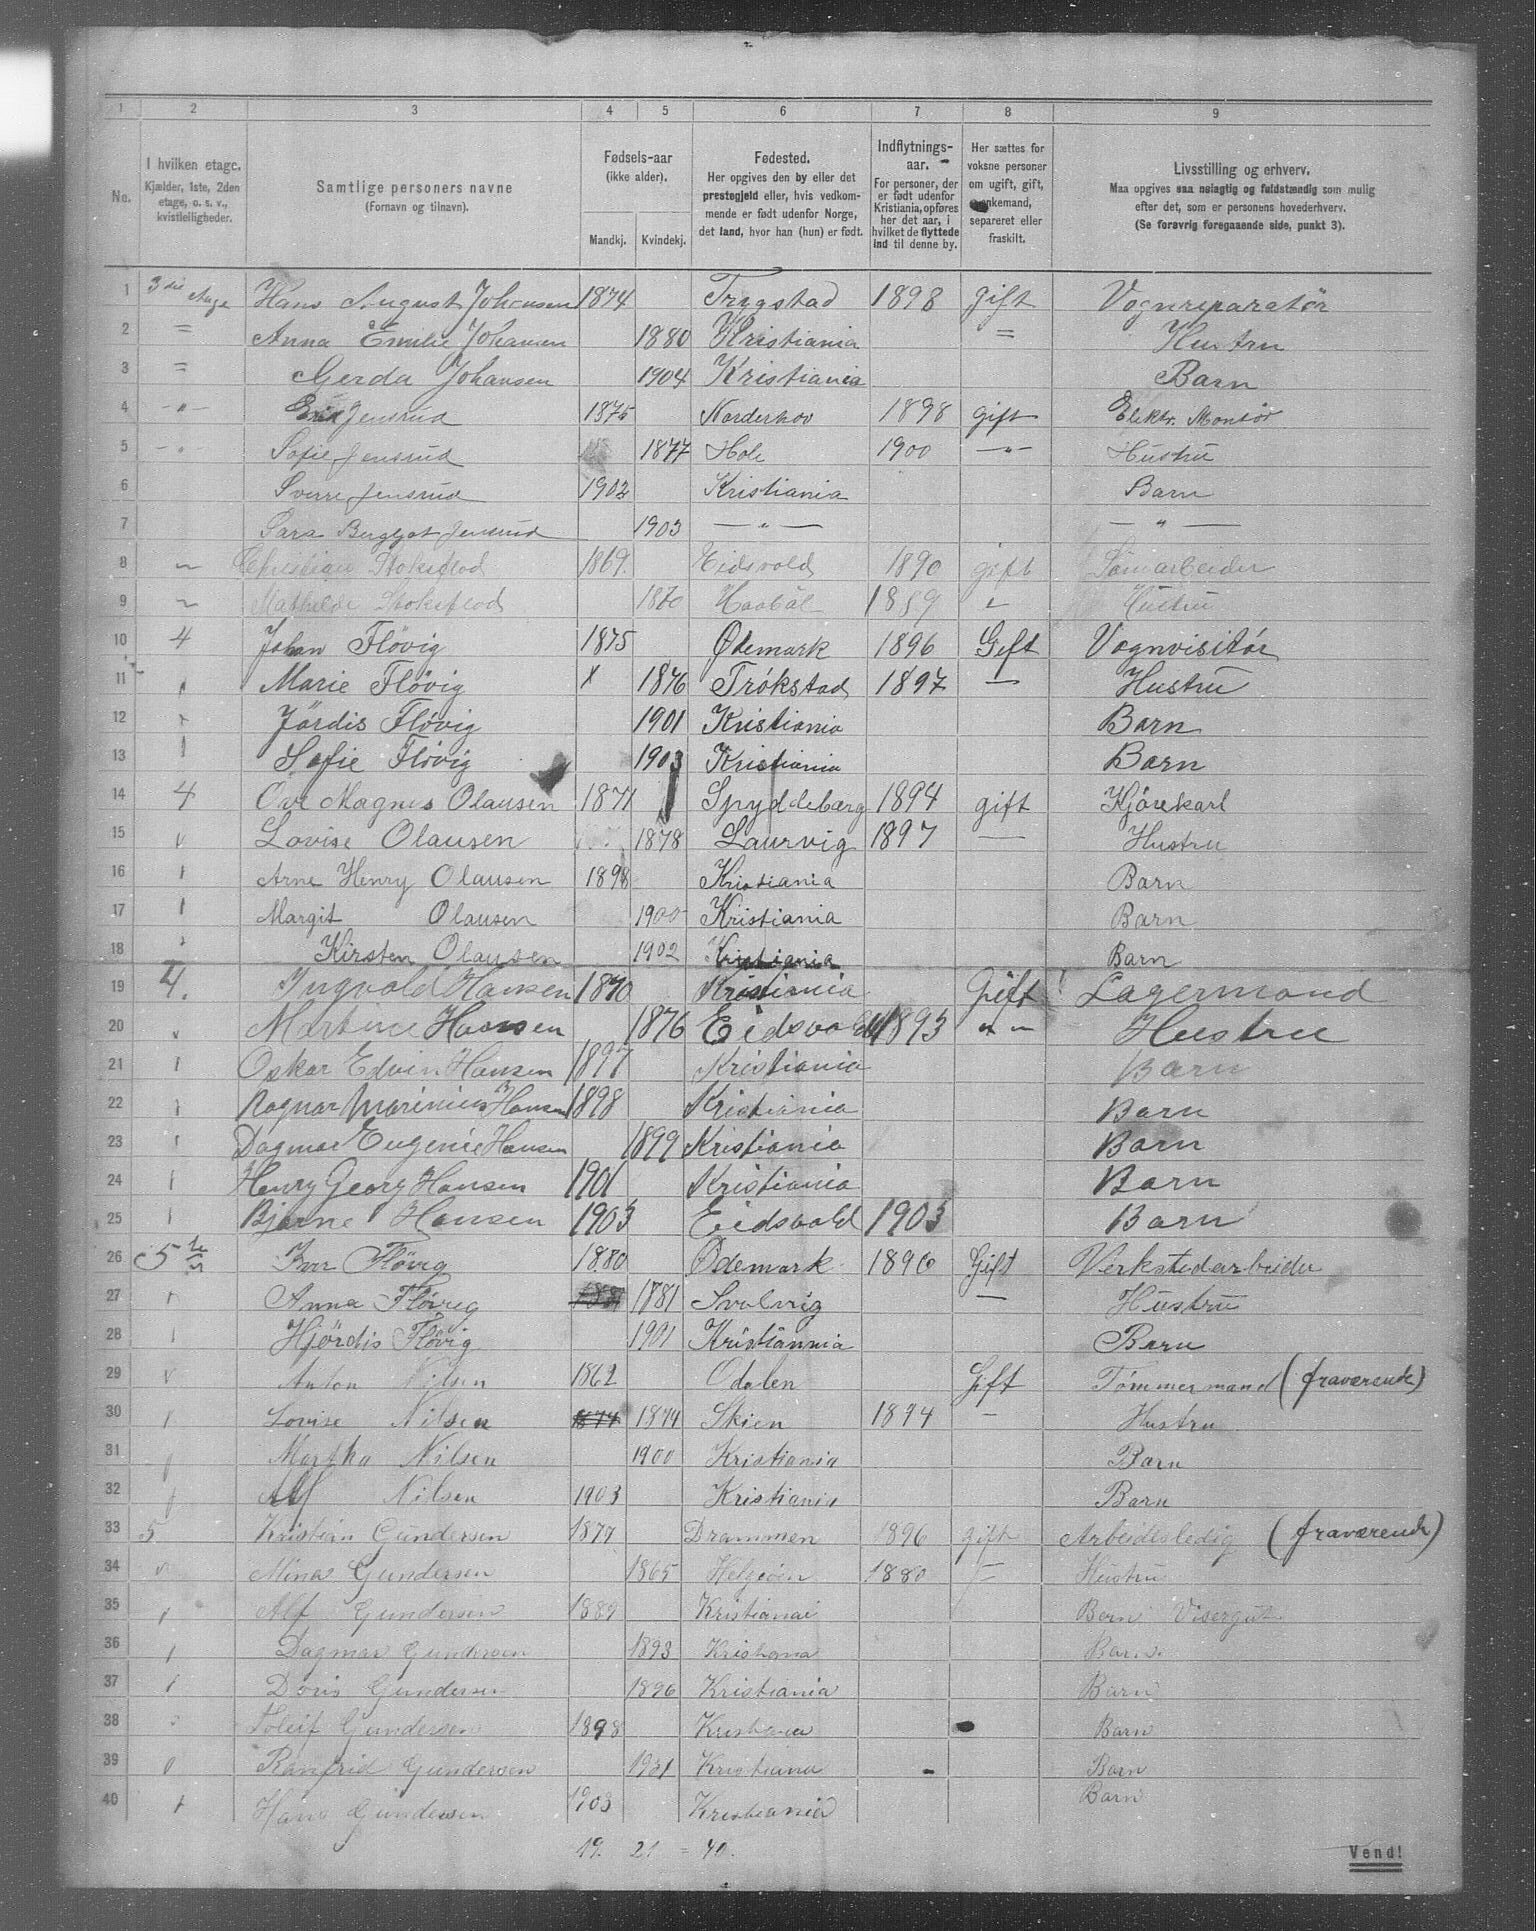 1 2 3 4 5 6 7 8 9
No.
I hvilken etage.
Kjælder, 1ste, 2den
etage, o. s. v.,
kvistleiligheder.
Samtlige personers navne
(Fornavn og tilnavn).
Fødsels-aar
(ikke alder).
Mandkj. Kvindekj.
Fødested.
Her opgives den by eller det
prestegjeld eller, hvis vedkom-
mende er født udenfor Norge,
det land, hvor han (hun) er født.
Indflytnings-
aar.
For personer, der
er født udenfor
Kristiania, opføres
her det aar, i
hvilket de flyttede
ind til denne by.
Her sættes for
voksne personer
om ugift, gift,
enkemand,
separeret eller
fraskilt.
Livsstilling og erhverv.
Maa opgives saa nøiagtig og fuldstændig som mulig
efter det, som er personens hovederhverv.
(Se forøvrig foregaaende side, punkt 3).
1 3die Etage Hans August Johansen 1874 Trygstad 1898 gift Vognreparatør
2 = Anna Emilie Johansen 1880 Kristiania = Hustru
3 = Gerda Johansen 1904 Kristiania Barn
4 -"- Jensrud 1875 Norderhov 1898 gift Elektr. Montør
5 -"- Sofie Jensrud 1877 Hole 1900 -"- Hustru
6 Sverre Jensrud 1902 Kristiania Barn
7 Sara Bergljot Jensrud 1903 -"- -"-
8 Christian Stokstlod 1869. Eidsvold 1890 gift
9 Mathilde Stokstlod 1870 Haabøl 1889 Hustru
10 4 Johan Fløvig 1875 Ødemark 1896 Gift Vognvisitør
11 " Marie Fløvig x 1876 Trøkstad 1897 — Hustru
12 " Jördis Fløvig 1901 Kristiania Barn
13 " Sofie Fløvig 1903 Kristiania Barn
14 4 Ove Magnus Olausen 1871 Spyddebarg 1894 gift Kjørekarl
15 " Lovise Olausen 1878 Laurvig 1897 — Hustru
16 " Arne Henry Olausen 1898 Kristiania Barn
17 " Margit Olausen 1900 Kristiania Barn
18 " Kirsten Olausen 1902 Kristiania Barn
19 4. Ingvald Hansen 1870 Kristiania Gift Lagermand
20 " Martine Hansen 1876 Eidsvold 1893 " Hustru
21 " Oskar Edvin Hansen 1897 Kristiania Barn
22 " Ragnar Marinius Hansen 1898 Kristiania Barn
23 " Dagmar Eugenie Hansen 1899 Kristiania Barn
24 " Henry Georg Hansen 1901 Kristiania Barn
25 " Bjarne Hansen 1903 Eidsvold 1903 Barn
26 5te Iver Fløvig 1880 Ødemark 1896 Gift Verkstedarbeider
27 " Anna Fløvig 1881 Svolvrig — Hustru
28 " Hjördis Fløvig 1901 Kristiannia Barn
29 " Anton Nilsen 1862 Odalen Gift Tømmermand (fraværende)
30 " Lovise Nilsen 1874 1874 Skien 1894 - Hustru
31 " Martha Nilsen 1900 Kristiania Barn
32 " Alf Nilsen 1903 Kristiania Barn
33 5 Kristian Gundersen 1877 Drammen 1896 gift Arbeidsledig (fraværende)
34 " Mina Gundersen 1865 Helgeöen 1880 — Hustru
35 " Alf Gundersen 1889 Kristianai Barn Visergut
36 " Dagmar Gundersen 1893 Kristiana Barn.
37 " Doris Gundersen 1896 Kristiania Barn
38 " Gundersen 1898 Kristiania Barn
39 " Ranfrid Gundersen 1901 Kristiania Barn
40 " Hans Gundersen 1903 Kristiania Barn
19. 21 = 40.
Vend!